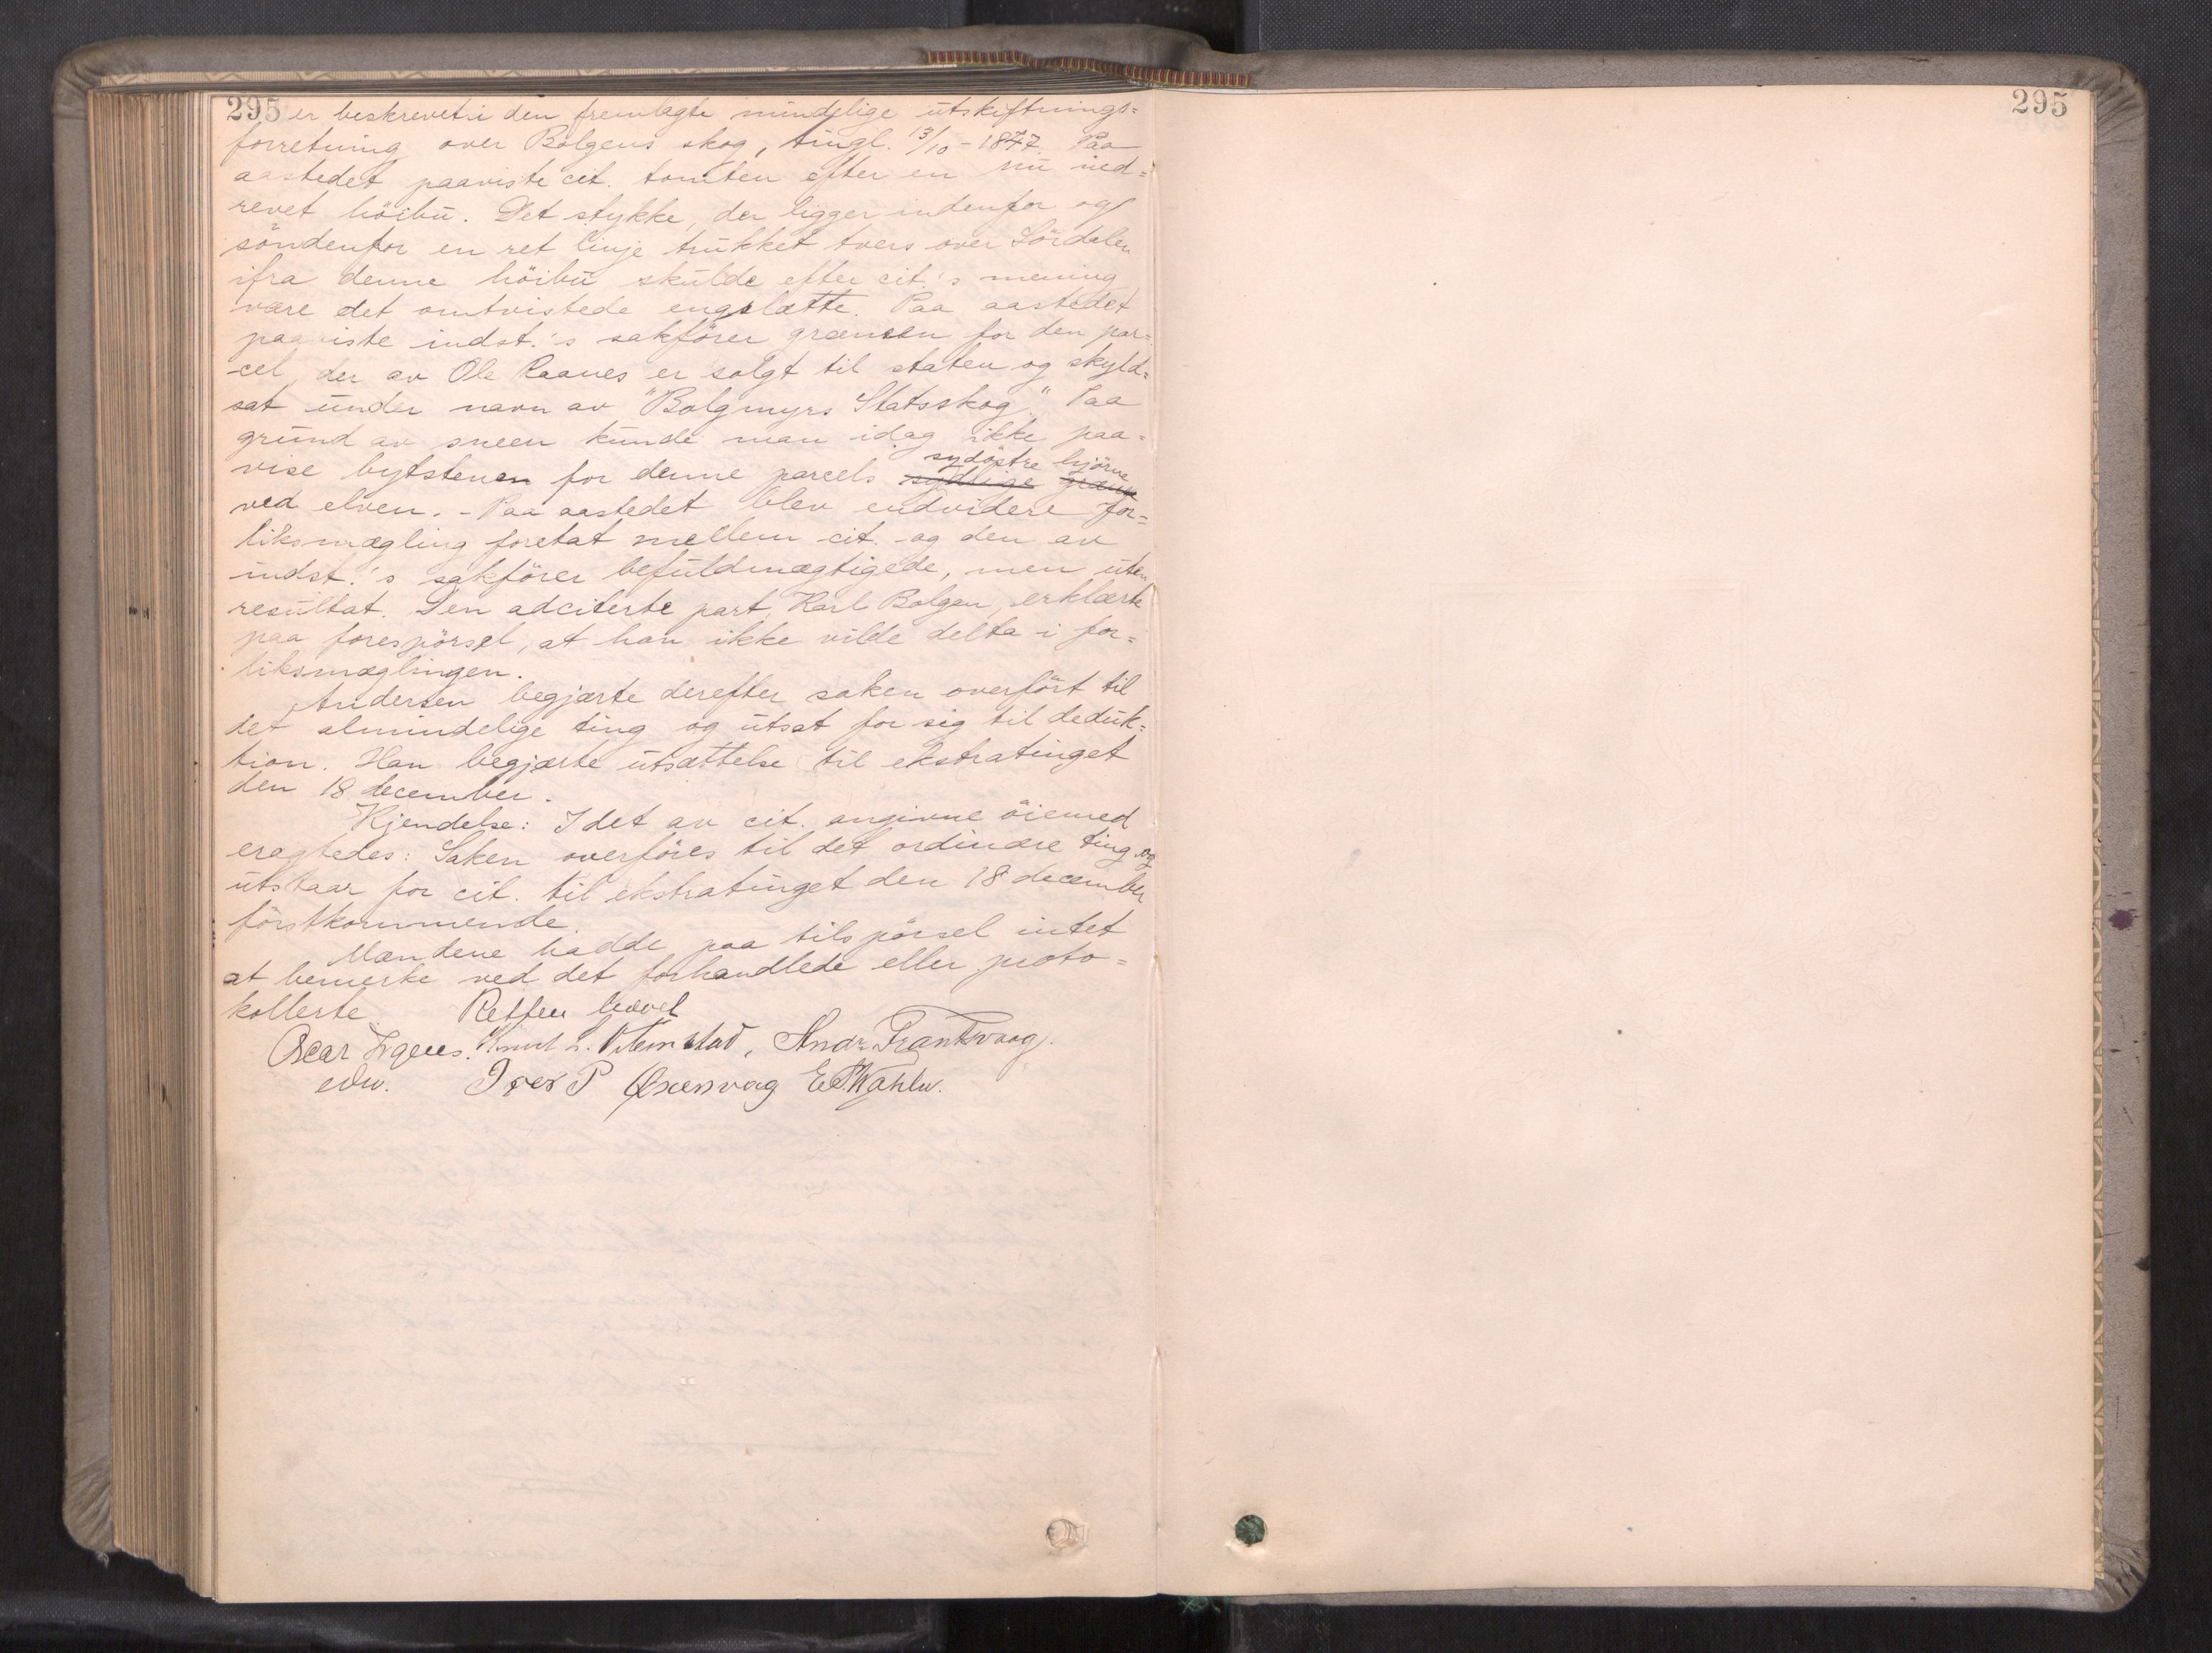 295 er beskrevet i den fremlagte mindelige utskiftnings=
forretning over Bolgens skog, tingl. 13/10 - 1877. Paa
aastedet paaviste cit. tomten efter en nu ned=
revet höibu. Det stykke, der ligger indenfor og
söndenfor en ret linje trukket tvers over Sördalen
ifra denne höibu skulde efter cit.'s mening
være det omtvistede engslætte. Paa aastedet
paaviste indst.'s sakförer grænsen for den par=
cel, der av Ole Raanes er solgt til staten og skyld=
sat under navn av "Bolgmyrs Statsskog." Paa
grund av sneen kunde man idag ikke paa=
sydöstre hjörne
vise bytstenen for denne parcels sydlige grænse
ved elven. - Paa aastedet blev endvidere for=
liksmægling foretat mellem cit. og den av
indst.'s sakförer befuldmægtigede, men uten
resultat. Den adciterte part, Karl Bolgen, erklærte
paa forespörsel, at han ikke vilde delta i for=
liksmæglingen.
Andersen begjærte derefter saken overfört til
det almindelige ting og utsat for sig til deduk=
tion. Han begjærte utsættelse til ekstratinget
den 18 december.
Kjendelse: I det av cit. angivne öiemed
eragtedes: Saken overföres til det ordinære ting og
utstaar for cit. til ekstratinget den 18 december
förstkommende.
Mændene hadde paa tilspörsel intet
at bemerke ved det forhandlede eller proto=
kollerte. Retten hævet
Oscar Knut L. Andr.
Iver P
295